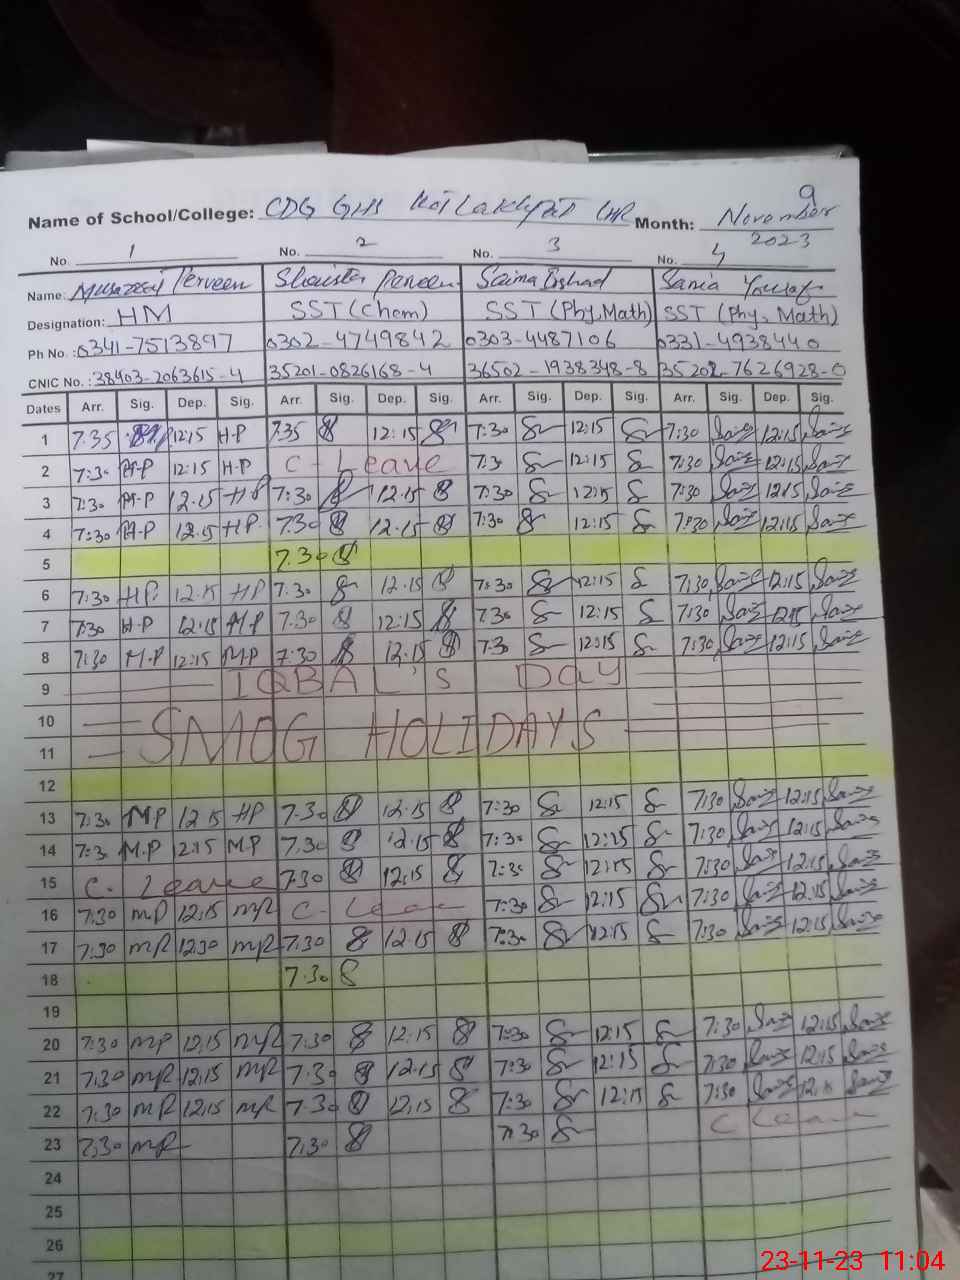 9
Name of School/College: CDG GHS Kot Lakhpat LHR Month: November
2023
No. 1 No. 2 No. 3 No. 4
Name: Perveen Shaista Parveen Saima Irshad Sania Yousaf
Designation: HM SST (Chem) SST (Phy, Math) SST (Phy, Math)
Ph No.: 0341-7513897 0302-4749842 0303-4487106 0331-4938440
CNIC No.: 38403-2063615-4 35201-0826168-4 36502-1938348-8 35202-7626928-0
Dates Arr. Sig. Dep. Sig. Arr. Sig. Dep. Sig. Arr. Sig. Dep. Sig. Arr. Sig. Dep. Sig.
1 7.35 12:15 H-P 7.35 12:15 7:30 12:15 7:30 12:15
2 7:30 H-P 12:15 H-P C-Leave 7:30 12:15 7:30 12:15
3 7:30 H-P 12.15 H-P 7:30 12.15 7:30 12:15 7:30 12:15
4 7:30 H-P 12.15 H-P 7.30 12.15 7:30 12:15 7:30 12:15
5 7.30
6 7:30 H-P 12.15 H-P 7:30 12.15 7:30 12:15 7:30 12:15
7 7:30 H-P 12:15 H-P 7:30 12:15 7:30 12:15 7:30 12:15
8 7:30 M.P 12:15 M.P 7:30 12.15 7:30 12:15 7:30 12:15
9 IQBAL'S Day
10 SMOG HOLIDAYS
11
12
13 7:30 MP 12 15 HP 7.30 12.15 7:30 12:15 7:30 12:15
14 7:3 M.P 2:15 M.P 7.30 12.15 7:30 12:15 7:30 12:15
15 C. Leave 7:30 12,15 7:30 12:15 7:30 12:15
16 7:30 mp 12,15 mp C-Leave 7:30 12:15 7:30 12:15
17 7:30 mp 12:30 mp 7.30 12.15 7:30 12:15 7:30 12:15
18 7.30
19
20 7:30 mp 12,15 mp 7:30 12:15 7:30 12:15 7:30 12:15
21 7,30 mp 12,15 mp 7.30 12.15 7:30 12:15 7:30 12:15
22 7,30 mp 12,15 mp 7.30 12,15 7:30 12:15 7:30
23 7,30 mp 7,30 7:30 C Leave
24
25
26
27
23-11-23 11:04